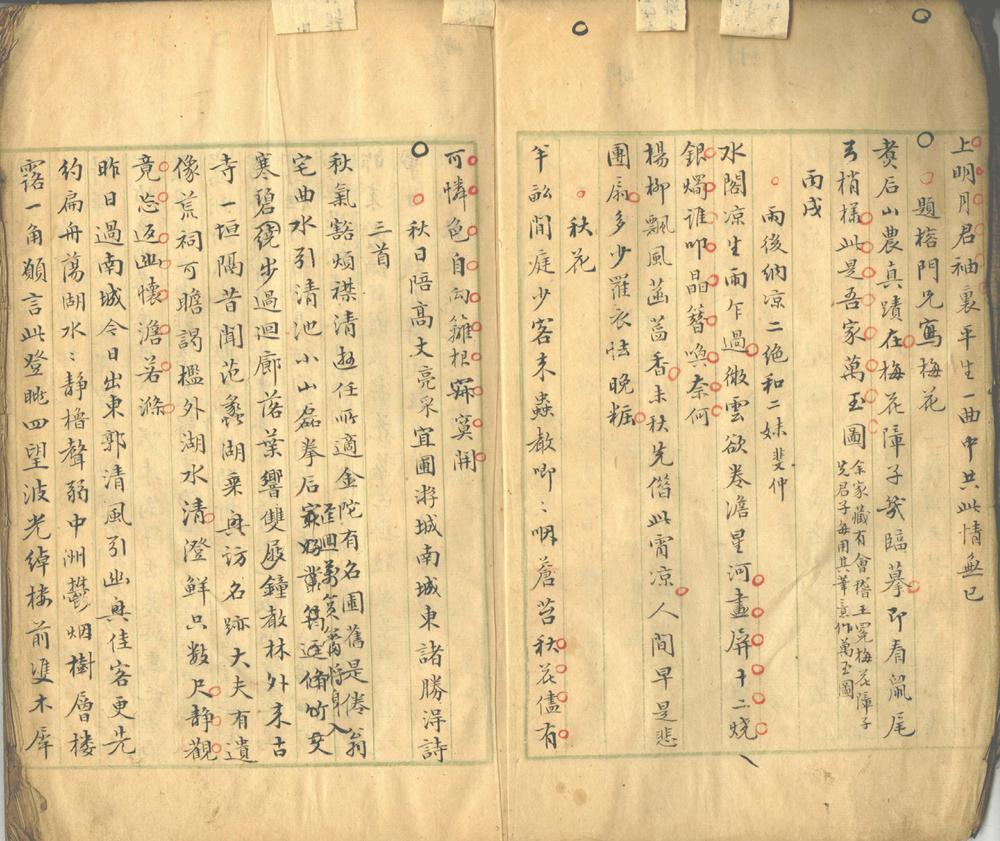 上明月君袖裏平生一曲中共此情無已
題榕門兄寫梅花
煑石山農真蹟在梅花障子幾臨摹即看鼠尾
梢樣此是吾家萬玉圖
余家藏有會稽王冕梅花障子
先君子每用其筆意作萬玉圖
丙戌
雨後納凉二絶和二妹
斐仲
水閣凉生雨乍過微雲欲卷澹星河畫屏十二燒
銀燭誰叩晶簪喚奈何
楊柳飄風菡萏香未秋先借此宵凉人間早是悲
團扇多少羅衣怯晚粧
秋花
訟閒庭少客来蟲聲唧〻咽蒼苔秋花儘有
可憐色自向籬根寂寞開
秋日陪高丈亮采宜圃游城南城東諸勝得詩
三首
秋氣豁煩襟清遊任所適金陀有名圃舊是倦翁
宅曲水引清池小山磊拳石
寒碧繞步過迴廊落葉響雙屐鐘聲林外来古
寺一垣隔昔聞范蠡湖乗興訪名跡大夫有遺
像荒祠可瞻謁檻外湖水清澄鮮只數尺静觀
竟忘返幽懷澹若滌
昨日過南城今日出東郭清風引幽興佳客更先
約扁舟蕩湖水〻静櫓聲弱中洲鬱烟樹層樓
露一角願言此登眺四望波光綽樓前雙木犀